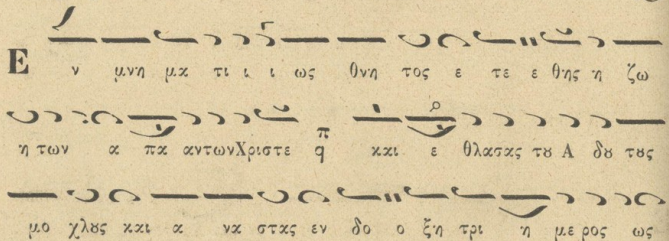 Ε ν μνη μα τι ι ι ως θνη τος ε τε ε θης η ζω
η των α πα αντων Χριστε π q και ε θλασας τȣ Α δȣ τȣς
μο χλȣς και α να στας εν δο ο ξη τρι η με ρος ως